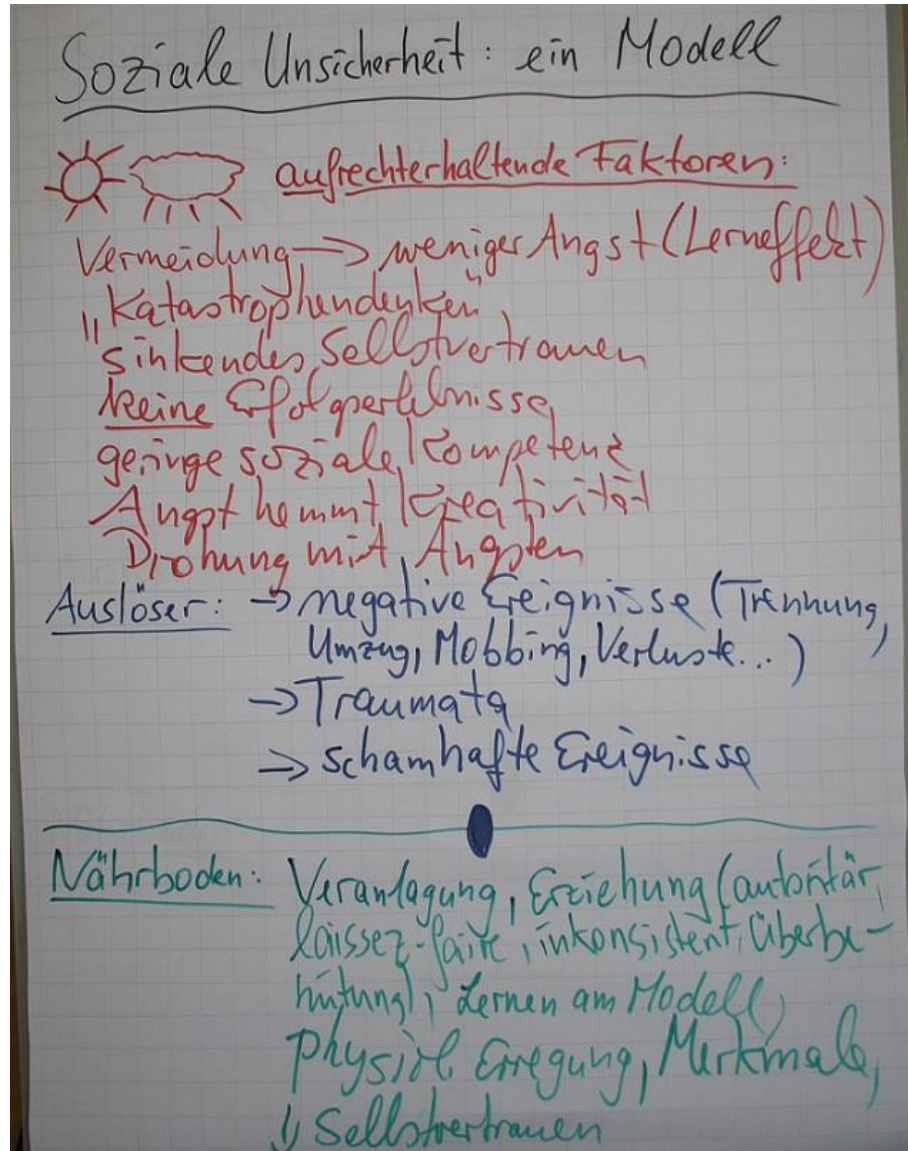 Soziale Unsicherheit: ein Modell
aufrechterhaltende Faktoren:
Vermeidung → weniger Angst (Lerneffekt)
"Katastrophendenken"
sinkendes Selbstvertrauen
keine Erfolgserlebnisse
geringe soziale Kompetenz
Angst hemmt Kreativität
Drohung mit Ängsten
Auslöser: → negative Ereignisse (Trennung,
Umzug, Mobbing, Verluste...)
→ Traumata
→ schamhafte Ereignisse
Nährboden: Veranlagung, Erziehung (autoritär,
laissez-faire, inkonsistent, Überbe-
hütung), Lernen am Modell,
physiol. Erregung, Merkmale,
↓ Selbstvertrauen